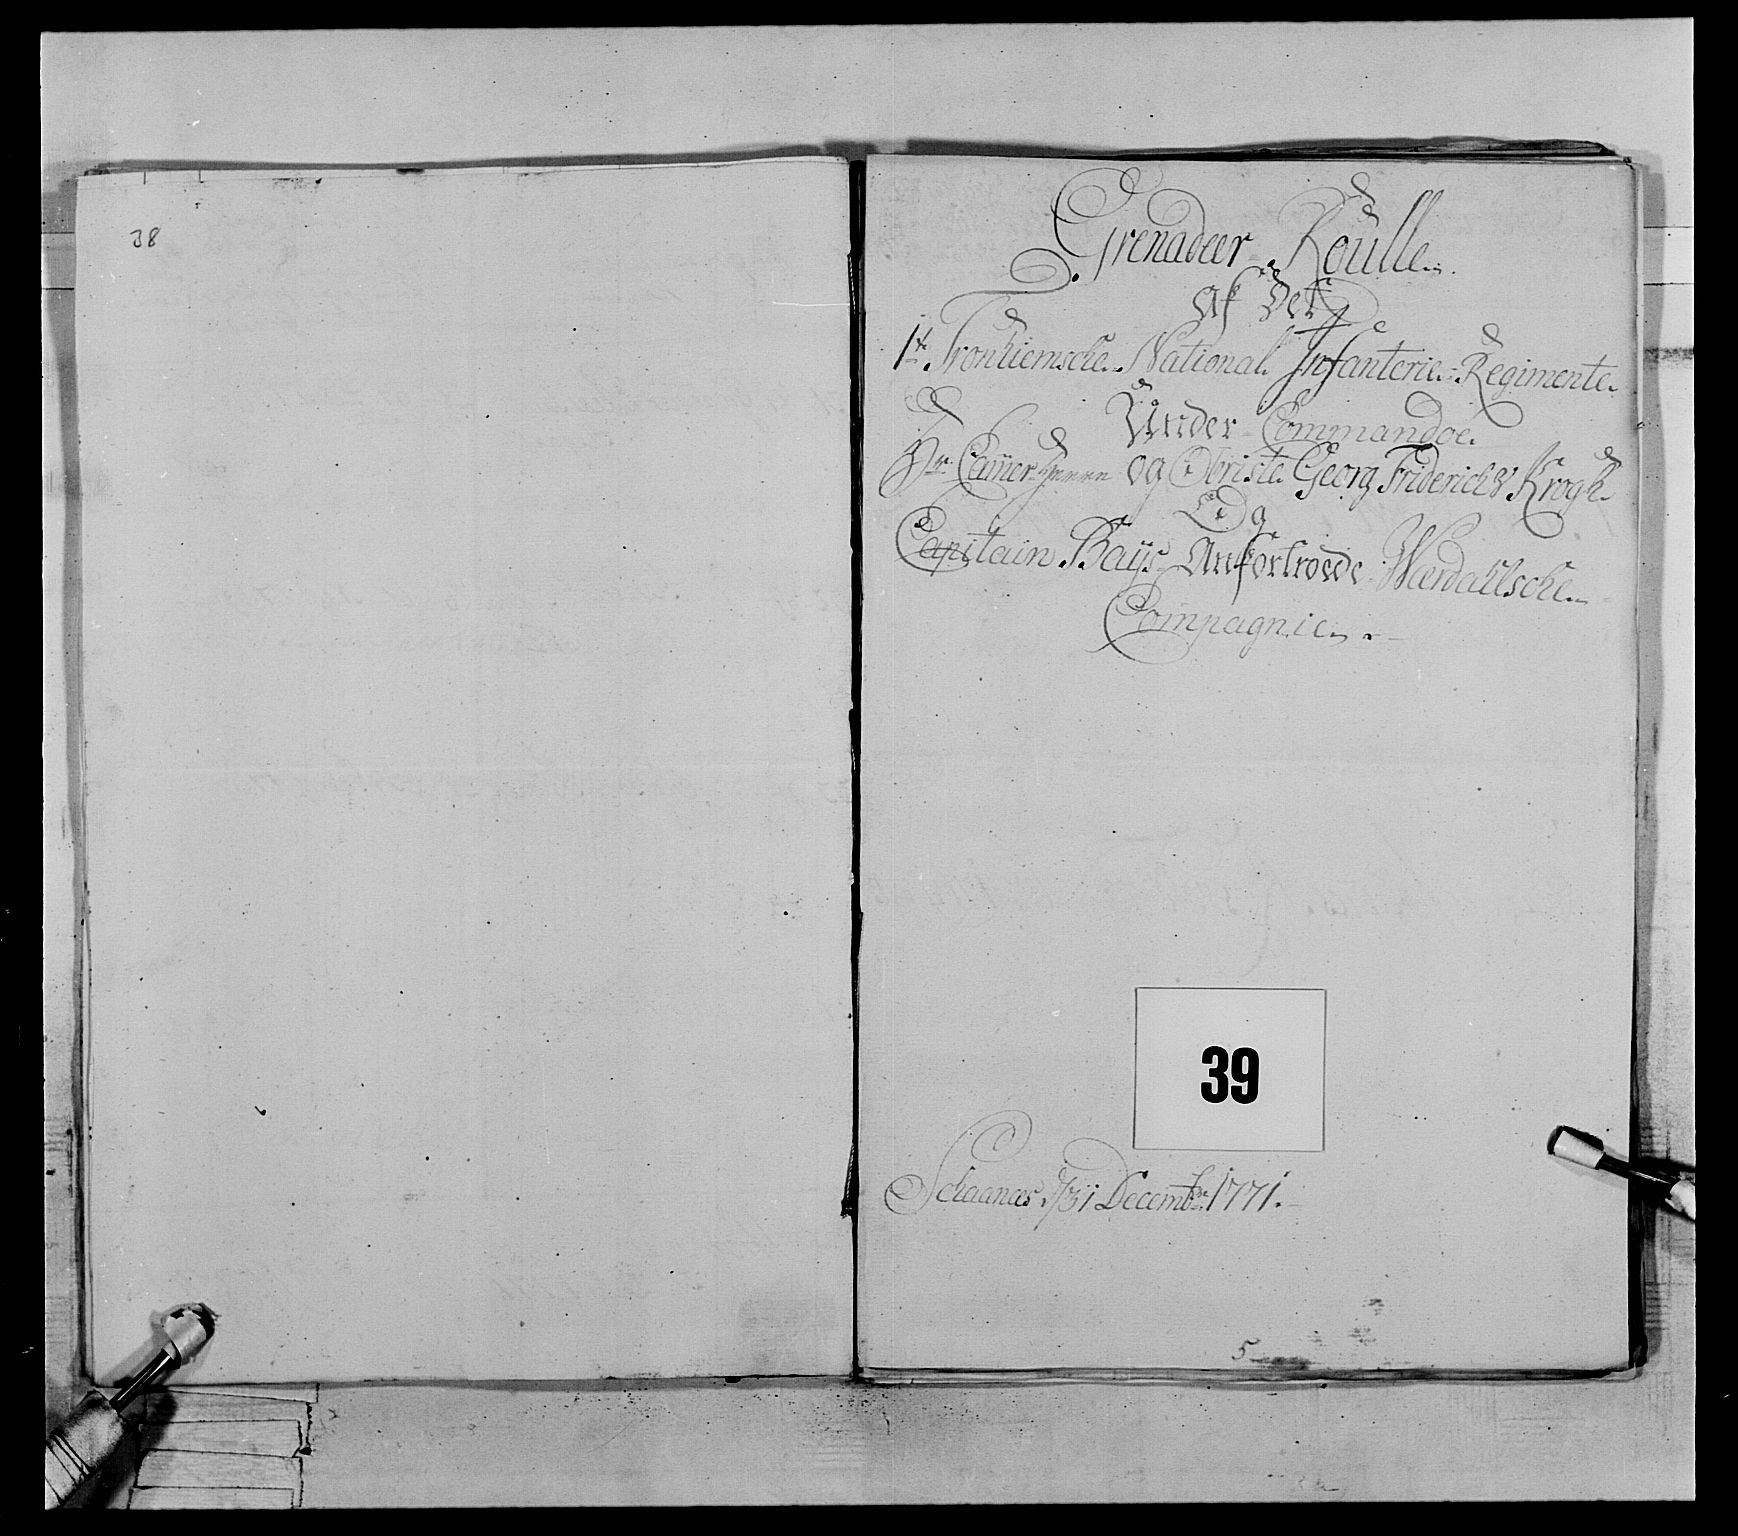 38
Grenadeer Roulle
af det
1te Tronhiemsche National Infanterie Regimente
Under Commando
Hr Camer Herre og Obriste Georg Friderich v Krogh
Og
Capitain Bays Anfortroede Wærdahlsche
Compagnie
39
Schaanæs d/31 Decembr 1771.
5